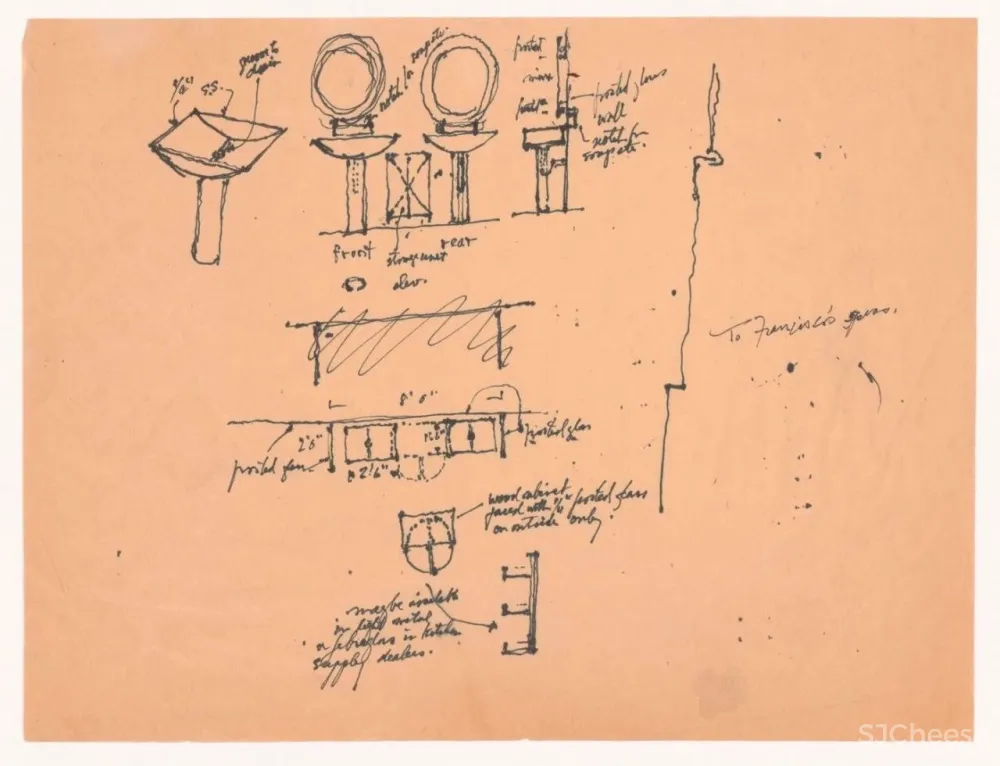 1/4"
S.S.
groove to
drain
notch for soap etc.
frosted
mirror
frosted
frosted glass
wall
notch for
soap etc.
front
storage unit
rear
elev.
To Francisco's
8'-0"
2'6"
frosted glass
2'6"
frosted glass
wood cabinet
faced with 1/4" frosted glass
on outside only
maybe available
in light metal
or fibreglass in kitchen
supply dealers.
SJChees